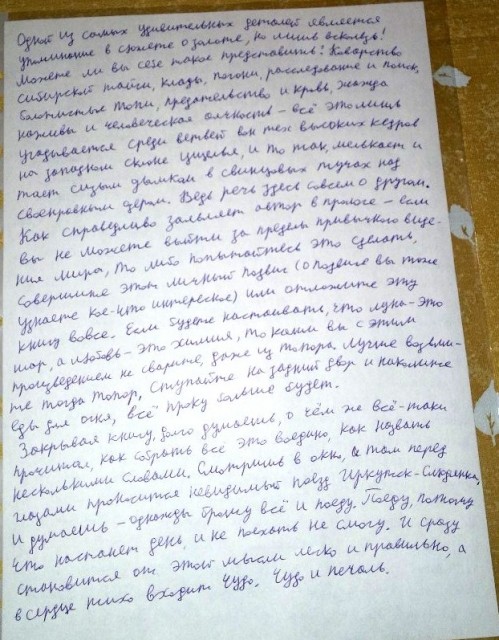 Одной из самых удивительных деталей является
упоминание в сюжете о золоте, но лишь вскользь!
Можете ли вы себе такое представить? Коварство
сибирской тайги, клады, погони, расследование и поиск,
болотистые топи, предательство и кровь, жажда
наживы и человеческая алчность – всё это лишь
угадывается среди ветвей вон тех высоких кедров
на западном склоне ущелья, и то так, мелькает и
тает сизым дымком в свинцовых тучах над
своенравным озером. Ведь речь здесь совсем о другом.
Как справедливо заявляет автор в прологе – если
вы не можете выйти за пределы привычного виде-
ния мира, то либо попытайтесь это сделать,
совершите этот личный подвиг (о подвиге вы тоже
узнаете кое-что интересное) или отложите эту
книгу вовсе. Если будете настаивать, что луна – это
шар, а любовь – это химия, то каши вы с этим
произведением не сварите, даже из топора. Лучше возьми-
те тогда топор, ступайте на задний двор и наколите
еды для огня, всё проку больше будет.
Закрывая книгу, долго думаешь, о чём же всё-таки
прочитал, как собрать всё это воедино, как назвать
несколькими словами. Смотришь в окно, а там перед
глазами проносится невидимый поезд Иркутск-Слюдянка,
и думаешь – однажды брошу всё и поеду. Поеду, потому
что настанет день, и не поехать не смогу. И сразу
становится от этой мысли легко и правильно, а
в сердце тихо входит чудо. Чудо и печаль.